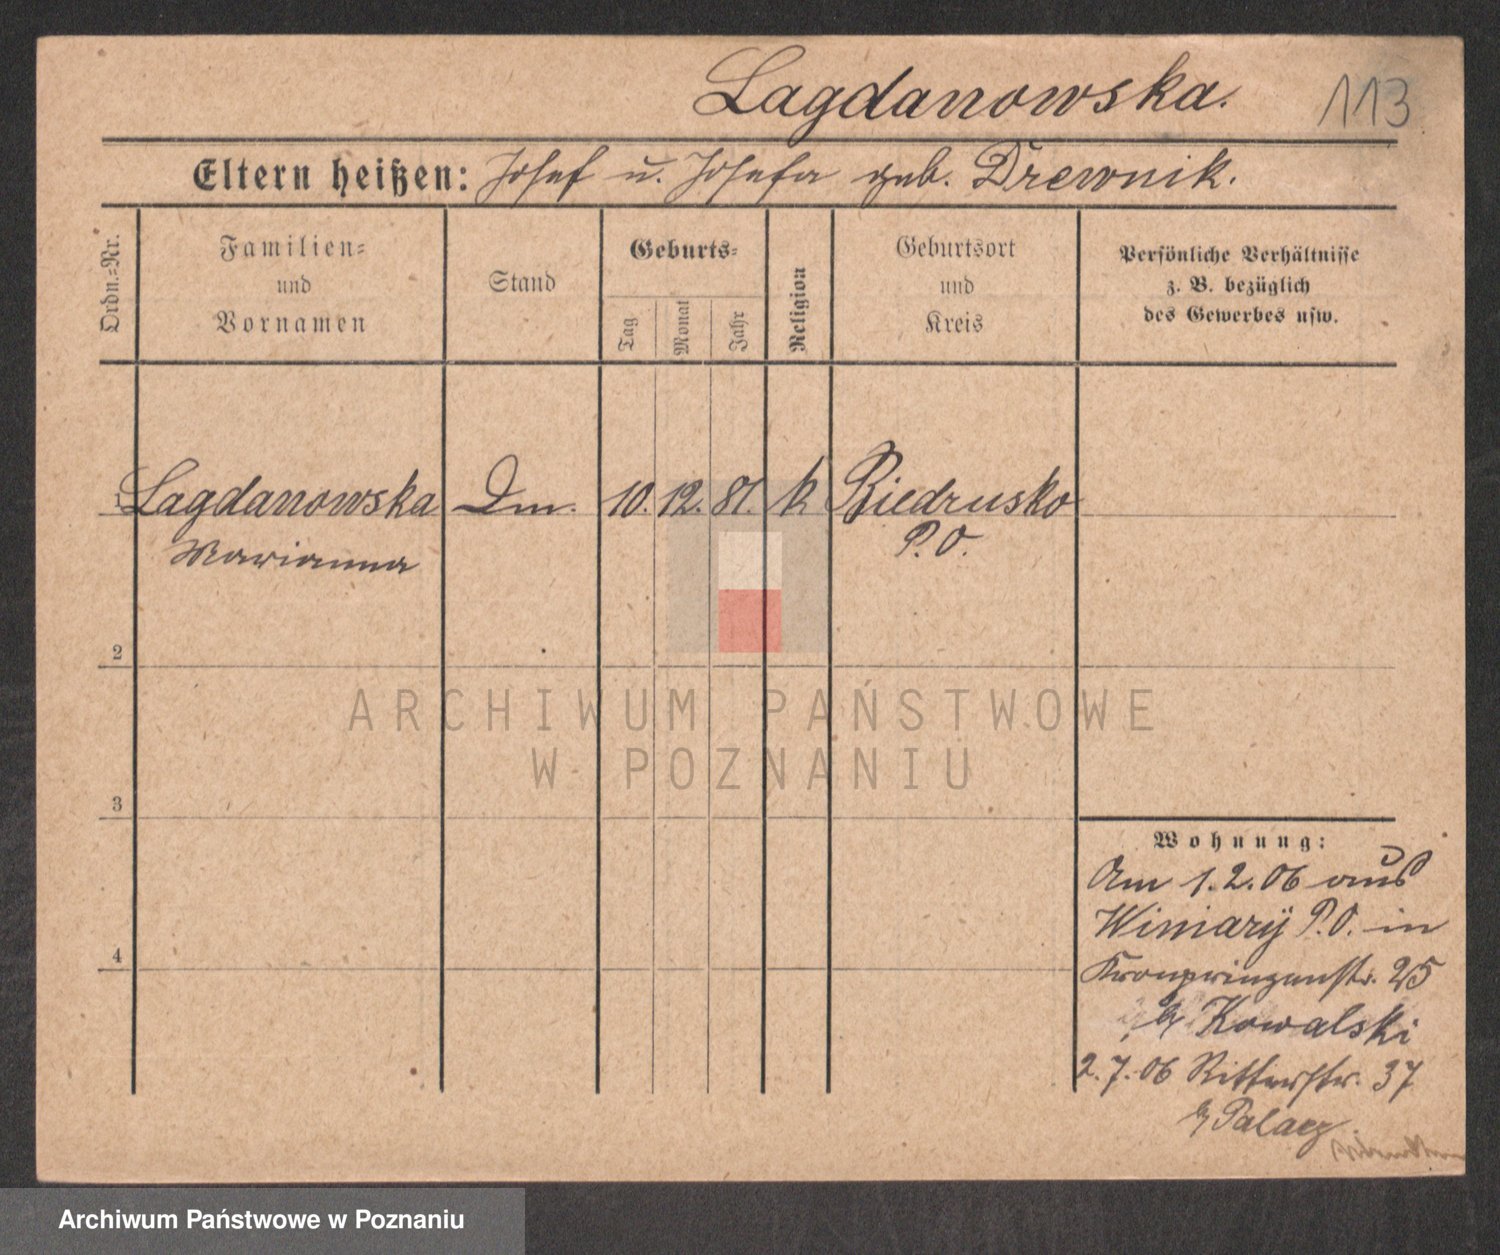 Lagdanowska.
113
Eltern heißen: Josef u. Josefa geb. Drewnik.
Ordn.=Nr.
Familien=
und
Vornamen
Stand
Geburts=
Tag
Monat
Jahr
Religion
Geburtsort
und
Kreis
Persönliche Verhältnisse
z. B. bezüglich
des Gewerbes usw.
1 Lagdanowska Dm. 10. 12. 81. k Biedrusko
Marianna P. O.
2
3
4
Wohnung:
Am 1.2.06 aus
Winiary P.O. in
Kronprinzenstr. 25
b/ Kowalski
2.7.06 Ritterstr. 37
b/ Palacz
ARCHIWUM PAŃSTWOWE
W POZNANIU
Archiwum Państwowe w Poznaniu